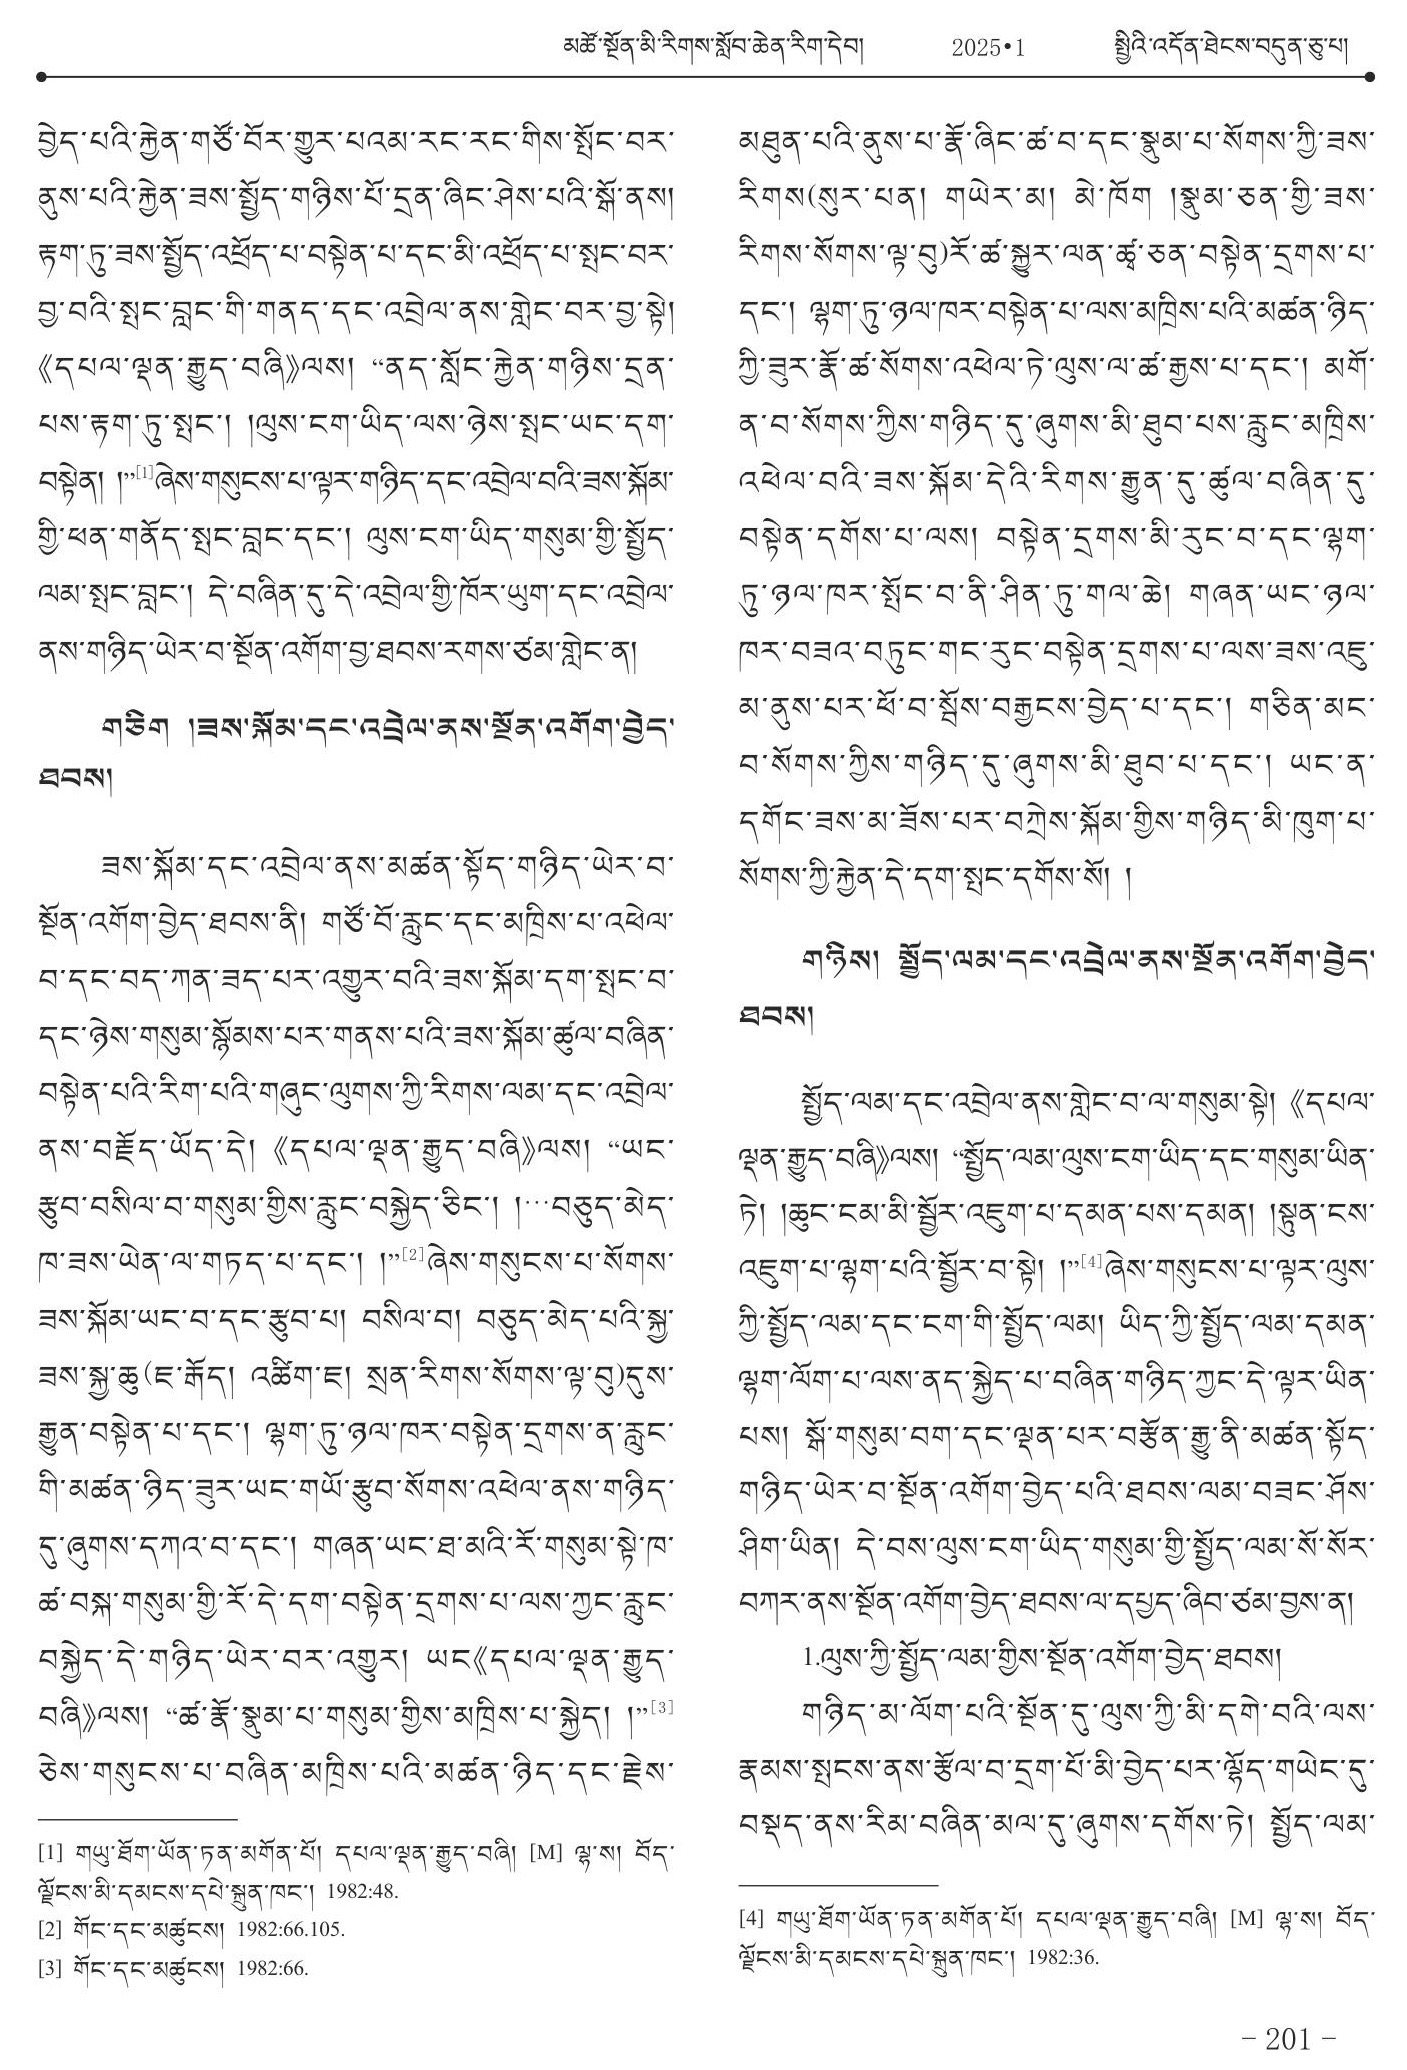 མཚོ་སྔོན་མི་རིགས་སློབ་ཆེན་རིག་དེབ། 2025•1 སྤྱིའི་འདོན་ཐེངས་བདུན་ཅུ་པ།
བྱེད་པའི་རྐྱེན་གཙོ་བོར་གྱུར་པའམ་རང་རང་གིས་སྤོང་བར་
ནུས་པའི་རྐྱེན་ཟས་སྤྱོད་གཉིས་པོ་དྲན་ཞིང་ཤེས་པའི་སྒོ་ནས།
རྟག་ཏུ་ཟས་སྤྱོད་འཕྲོད་པ་བསྟེན་པ་དང་མི་འཕྲོད་པ་སྤང་བར་
བྱ་བའི་སྤང་བླང་གི་གནད་དང་འབྲེལ་ནས་གླེང་བར་བྱ་སྟེ།
《དཔལ་ལྡན་རྒྱུད་བཞི》ལས། “ནད་སློང་རྐྱེན་གཉིས་དྲན་
པས་རྟག་ཏུ་སྤང་། །ལུས་ངག་ཡིད་ལས་ཉེས་སྤང་ཡང་དག་
བསྟེན། །”[1]ཞེས་གསུངས་པ་ལྟར་གཉིད་དང་འབྲེལ་བའི་ཟས་སྐོམ་
གྱི་ཕན་གནོད་སྤང་བླང་དང་། ལུས་ངག་ཡིད་གསུམ་གྱི་སྤྱོད་
ལམ་སྤང་བླང་། དེ་བཞིན་དུ་དེ་འབྲེལ་གྱི་ཁོར་ཡུག་དང་འབྲེལ་
ནས་གཉིད་ཡེར་བ་སྔོན་འགོག་བྱ་ཐབས་རགས་ཙམ་གླེང་ན།
གཅིག །ཟས་སྐོམ་དང་འབྲེལ་ནས་སྔོན་འགོག་བྱེད་
ཐབས།
ཟས་སྐོམ་དང་འབྲེལ་ནས་མཚན་སྟོད་གཉིད་ཡེར་བ་
སྔོན་འགོག་བྱེད་ཐབས་ནི། གཙོ་བོ་རླུང་དང་མཁྲིས་པ་འཕེལ་
བ་དང་བད་ཀན་ཟད་པར་འགྱུར་བའི་ཟས་སྐོམ་དག་སྤང་བ་
དང་ཉེས་གསུམ་སྙོམས་པར་གནས་པའི་ཟས་སྐོམ་ཚུལ་བཞིན་
བསྟེན་པའི་རིག་པའི་གཞུང་ལུགས་ཀྱི་རིགས་ལམ་དང་འབྲེལ་
ནས་བརྗོད་ཡོད་དེ། 《དཔལ་ལྡན་རྒྱུད་བཞི》ལས། “ཡང་
རྩུབ་བསིལ་བ་གསུམ་གྱིས་རླུང་བསྐྱེད་ཅིང་། །…བཅུད་མེད་
ཁ་ཟས་ཡེན་ལ་གཏད་པ་དང་། །”[2]ཞེས་གསུངས་པ་སོགས་
ཟས་སྐོམ་ཡང་བ་དང་རྩུབ་པ། བསིལ་བ། བཅུད་མེད་པའི་སྐྱ་
ཟས་སྐྱ་ཆུ(ཇ་རྒོད། འཚིག་ཇ། སྲན་རིགས་སོགས་ལྟ་བུ)དུས་
རྒྱུན་བསྟེན་པ་དང་། ལྷག་ཏུ་ཉལ་ཁར་བསྟེན་དྲགས་ན་རླུང་
གི་མཚན་ཉིད་ཟུར་ཡང་གཡོ་རྩུབ་སོགས་འཕེལ་ནས་གཉིད་
དུ་ཞུགས་དཀའ་བ་དང་། གཞན་ཡང་ཐ་མའི་རོ་གསུམ་སྟེ་ཁ་
ཚ་བསྐ་གསུམ་གྱི་རོ་དེ་དག་བསྟེན་དྲགས་པ་ལས་ཀྱང་རླུང་
བསྐྱེད་དེ་གཉིད་ཡེར་བར་འགྱུར། ཡང《དཔལ་ལྡན་རྒྱུད་
བཞི》ལས། “ཚ་རྣོ་སྣུམ་པ་གསུམ་གྱིས་མཁྲིས་པ་སྐྱེད། །”[3]
ཅེས་གསུངས་པ་བཞིན་མཁྲིས་པའི་མཚན་ཉིད་དང་རྗེས་
[1] གཡུ་ཐོག་ཡོན་ཏན་མགོན་པོ། དཔལ་ལྡན་རྒྱུད་བཞི། [M] ལྷ་ས། བོད་
ལྗོངས་མི་དམངས་དཔེ་སྐྲུན་ཁང་། 1982:48.
[2] གོང་དང་མཚུངས། 1982:66.105.
[3] གོང་དང་མཚུངས། 1982:66.
མཐུན་པའི་ནུས་པ་རྣོ་ཞིང་ཚ་བ་དང་སྣུམ་པ་སོགས་ཀྱི་ཟས་
རིགས(སུར་པན། གཡེར་མ། མེ་ཁོག །སྣུམ་ཅན་གྱི་ཟས་
རིགས་སོགས་ལྟ་བུ)རོ་ཚ་སྐྱུར་ལན་ཚྭ་ཅན་བསྟེན་དྲགས་པ་
དང་། ལྷག་ཏུ་ཉལ་ཁར་བསྟེན་པ་ལས་མཁྲིས་པའི་མཚན་ཉིད་
ཀྱི་ཟུར་རྣོ་ཚ་སོགས་འཕེལ་ཏེ་ལུས་ལ་ཚ་རྒྱས་པ་དང་། མགོ་
ན་བ་སོགས་ཀྱིས་གཉིད་དུ་ཞུགས་མི་ཐུབ་པས་རླུང་མཁྲིས་
འཕེལ་བའི་ཟས་སྐོམ་དེའི་རིགས་རྒྱུན་དུ་ཚུལ་བཞིན་དུ་
བསྟེན་དགོས་པ་ལས། བསྟེན་དྲགས་མི་རུང་བ་དང་ལྷག་
ཏུ་ཉལ་ཁར་སྤོང་བ་ནི་ཤིན་ཏུ་གལ་ཆེ། གཞན་ཡང་ཉལ་
ཁར་བཟའ་བཏུང་གང་རུང་བསྟེན་དྲགས་པ་ལས་ཟས་འཇུ་
མ་ནུས་པར་ཕོ་བ་སྦོས་བརྒྱངས་བྱེད་པ་དང་། གཅིན་མང་
བ་སོགས་ཀྱིས་གཉིད་དུ་ཞུགས་མི་ཐུབ་པ་དང་། ཡང་ན་
དགོང་ཟས་མ་ཟོས་པར་བཀྲེས་སྐོམ་གྱིས་གཉིད་མི་ཁུག་པ་
སོགས་ཀྱི་རྐྱེན་དེ་དག་སྤང་དགོས་སོ། །
གཉིས། སྤྱོད་ལམ་དང་འབྲེལ་ནས་སྔོན་འགོག་བྱེད་
ཐབས།
སྤྱོད་ལམ་དང་འབྲེལ་ནས་གླེང་བ་ལ་གསུམ་སྟེ། 《དཔལ་
ལྡན་རྒྱུད་བཞི》ལས། “སྤྱོད་ལམ་ལུས་ངག་ཡིད་དང་གསུམ་ཡིན་
ཏེ། །ཆུང་ངམ་མི་སྦྱོར་འཇུག་པ་དམན་པས་དམན། །སྟུན་ངས་
འཇུག་པ་ལྷག་པའི་སྦྱོར་བ་སྟེ། །”[4]ཞེས་གསུངས་པ་ལྟར་ལུས་
ཀྱི་སྤྱོད་ལམ་དང་ངག་གི་སྤྱོད་ལམ། ཡིད་ཀྱི་སྤྱོད་ལམ་དམན་
ལྷག་ལོག་པ་ལས་ནད་སྐྱེད་པ་བཞིན་གཉིད་ཀྱང་དེ་ལྟར་ཡིན་
པས། སྒོ་གསུམ་བག་དང་ལྡན་པར་བརྩོན་རྒྱུ་ནི་མཚན་སྟོད་
གཉིད་ཡེར་བ་སྔོན་འགོག་བྱེད་པའི་ཐབས་ལམ་བཟང་ཤོས་
ཤིག་ཡིན། དེ་བས་ལུས་ངག་ཡིད་གསུམ་གྱི་སྤྱོད་ལམ་སོ་སོར་
བཀར་ནས་སྔོན་འགོག་བྱེད་ཐབས་ལ་དཔྱད་ཞིབ་ཙམ་བྱས་ན།
1.ལུས་ཀྱི་སྤྱོད་ལམ་གྱིས་སྔོན་འགོག་བྱེད་ཐབས།
གཉིད་མ་ལོག་པའི་སྔོན་དུ་ལུས་ཀྱི་མི་དགེ་བའི་ལས་
རྣམས་སྤངས་ནས་རྩོལ་བ་དྲག་པོ་མི་བྱེད་པར་ལྷོད་གཡེང་དུ་
བསྡད་ནས་རིམ་བཞིན་མལ་དུ་ཞུགས་དགོས་ཏེ། སྤྱོད་ལམ་
[4] གཡུ་ཐོག་ཡོན་ཏན་མགོན་པོ། དཔལ་ལྡན་རྒྱུད་བཞི། [M] ལྷ་ས། བོད་
ལྗོངས་མི་དམངས་དཔེ་སྐྲུན་ཁང་། 1982:36.
– 201 –